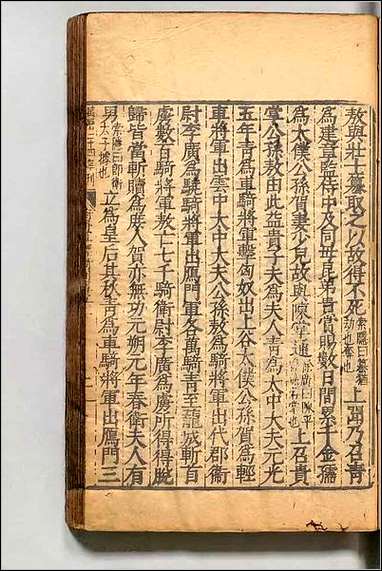 敖與壯士篡取之以故得不死索隱曰篡猶劫也奪也上聞乃召青
為建章監侍中及同母昆弟貴賞賜數日間累千金孺
為太僕公孫賀妻少兒故與陳掌通徐廣曰陳平上召貴
掌公孫敖由此益貴子夫為夫人青為太中大夫元光
五年青為車騎將軍擊匈奴出上谷太僕公孫賀為輕
車將軍出雲中太中大夫公孫敖為騎將軍出代郡衛
尉李廣為驍騎將軍出鴈門軍各萬騎青至蘢城斬首
虜數百騎將軍敖亡七千騎衛尉李廣為虜所得得脫
歸皆當斬贖為庶人賀亦無功元朔元年春衛夫人有
男索隱曰即衛太子據也立為皇后其秋青為車騎將軍出鴈門三